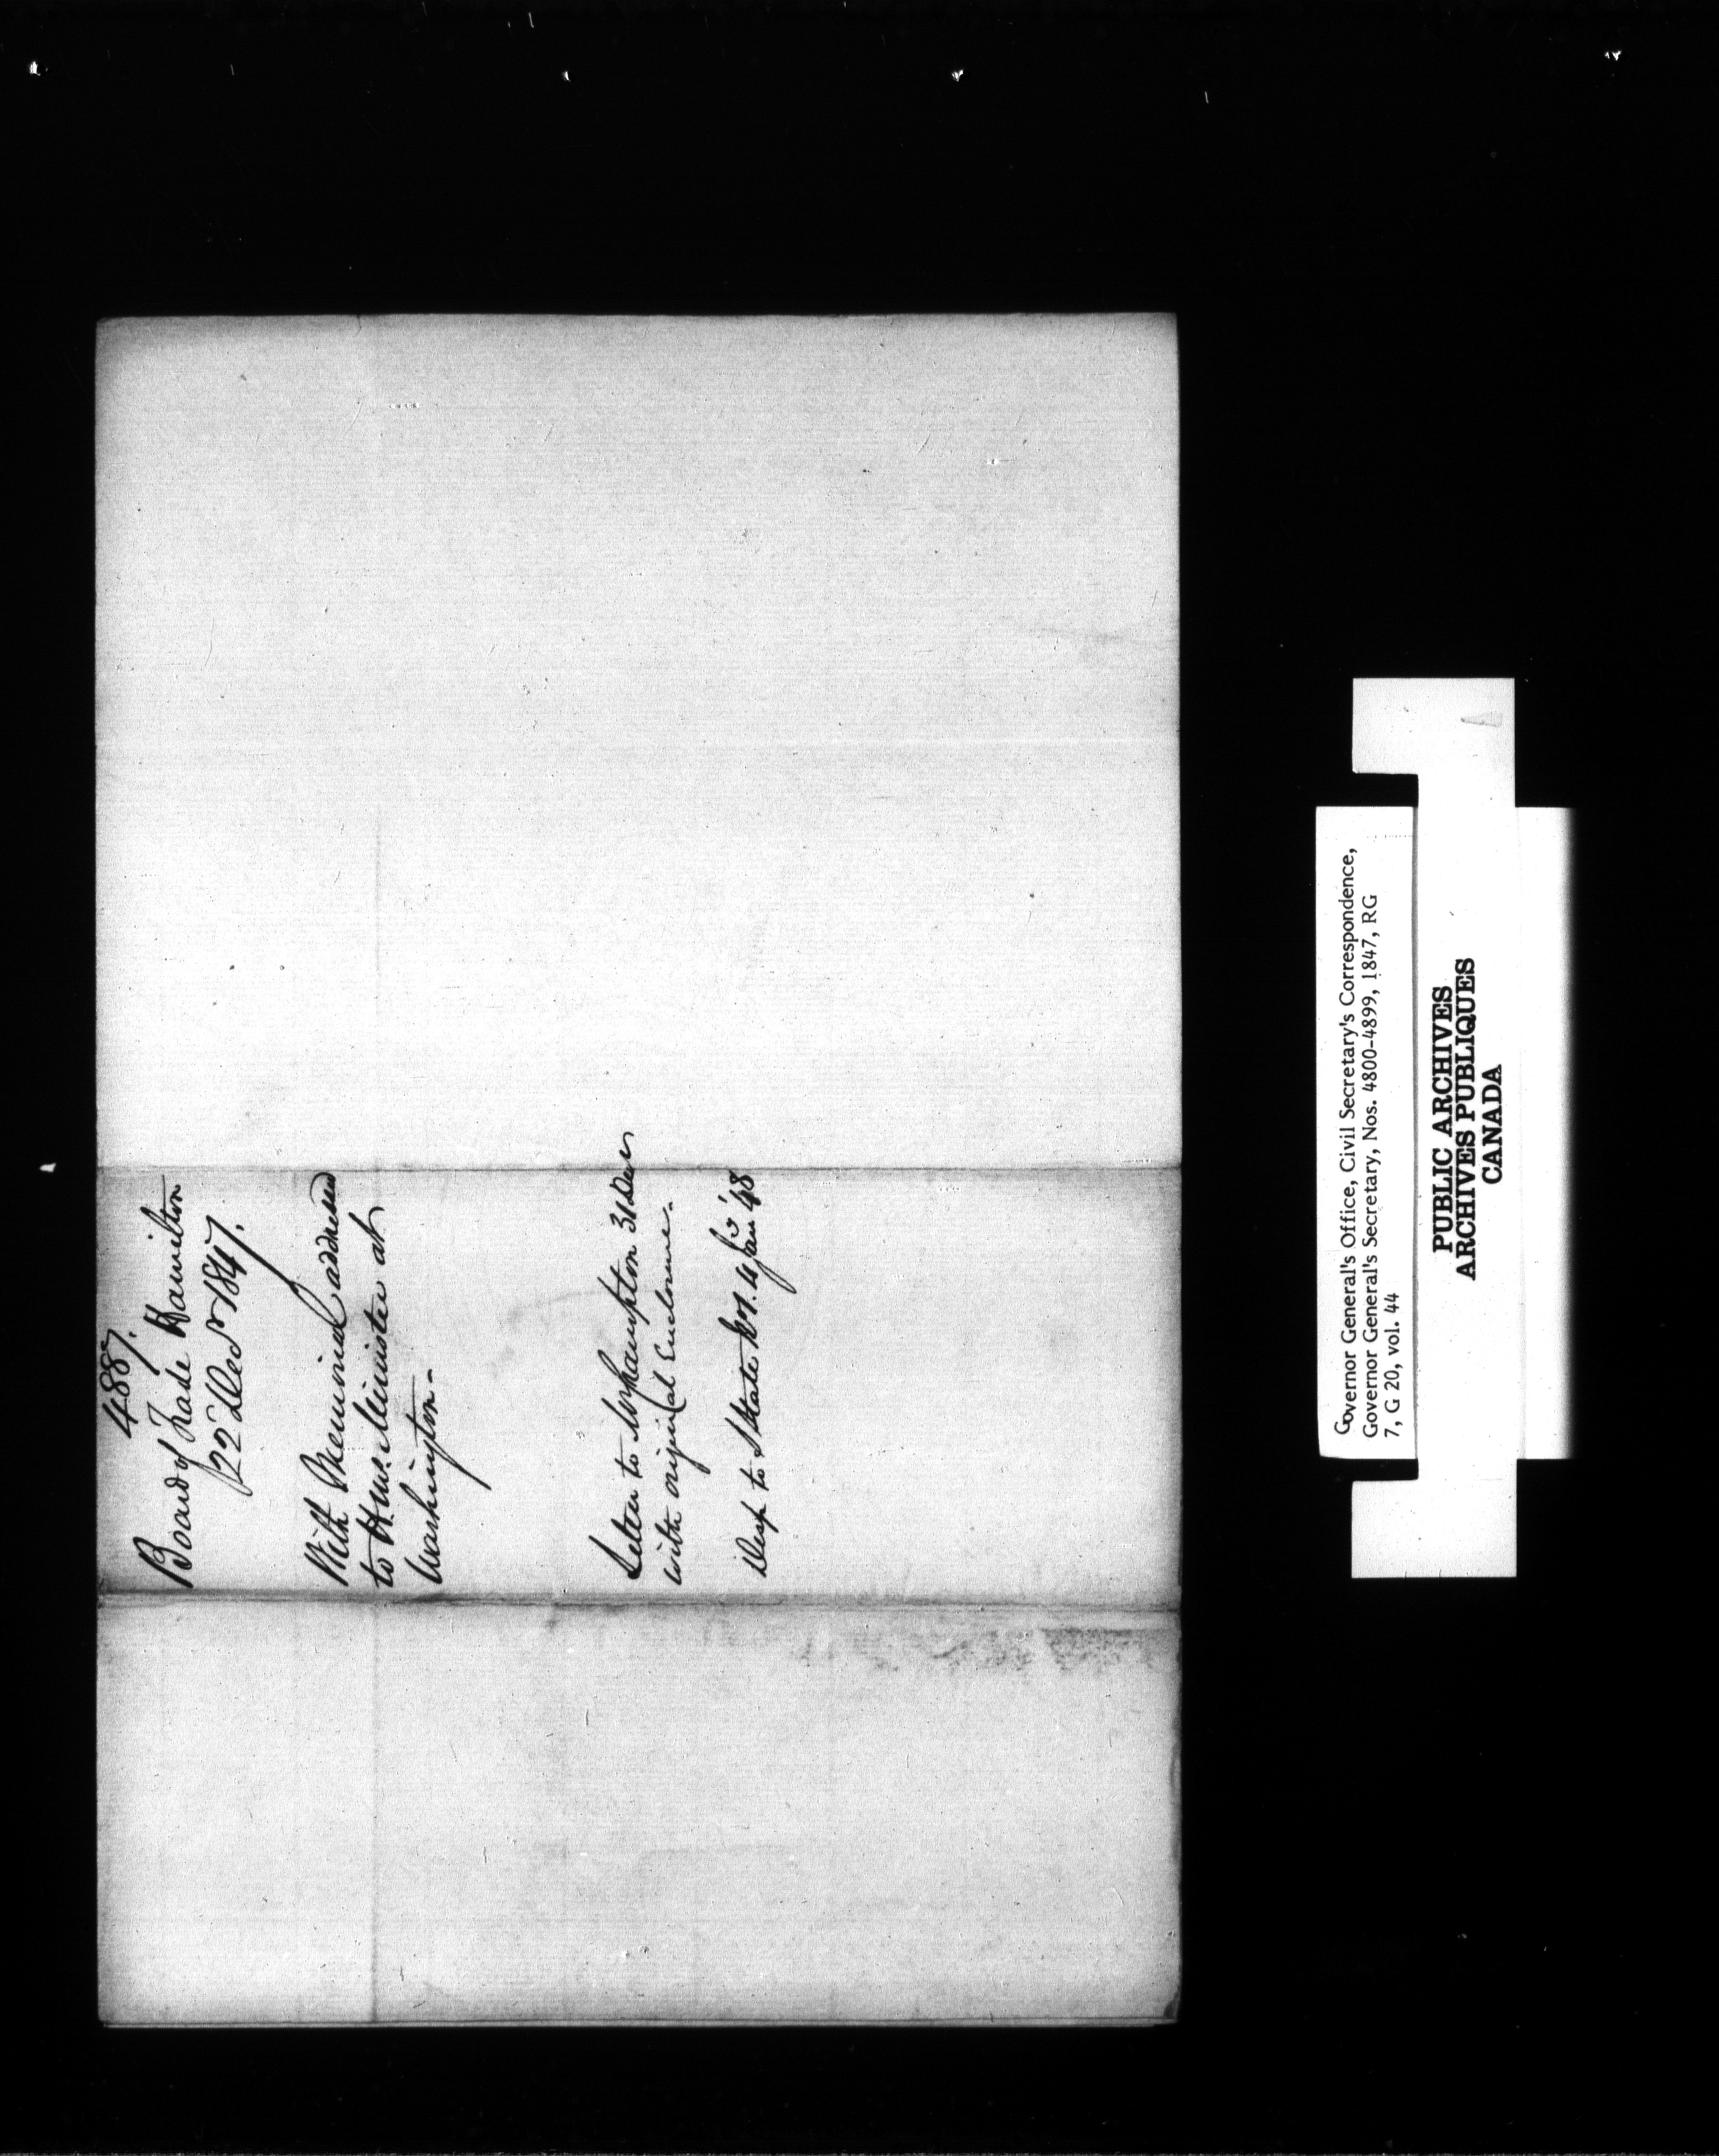 4887.
Board of Trade Hamilton
22 Decr 1847.
With Memorial addressed
to H.M. Minister at
Washington.
Letter to 31 Decr
with original Enclosure.
Desp to State No. 4 Jany '48
Governor General's Office, Civil Secretary's Correspondence,
Governor General's Secretary, Nos. 4800-4899, 1847, RG
7, G 20, vol. 44
PUBLIC ARCHIVES
ARCHIVES PUBLIQUES
CANADA